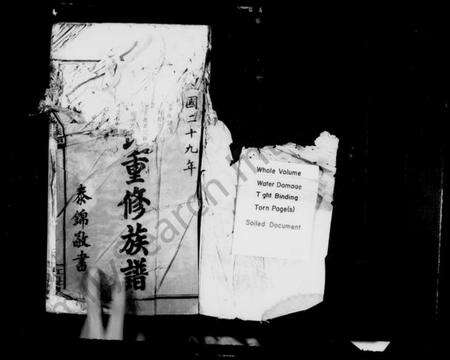 國二十九年
重修族譜
泰錦敬書
Whole Volume
Water Damage
Tight Binding
Torn Page(s)
Soiled Document